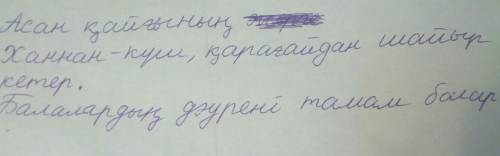 Асан қайғының
Ханнан-күш, қарағайдан шайыр
кетер.
Балалардың дәурені тамам болар